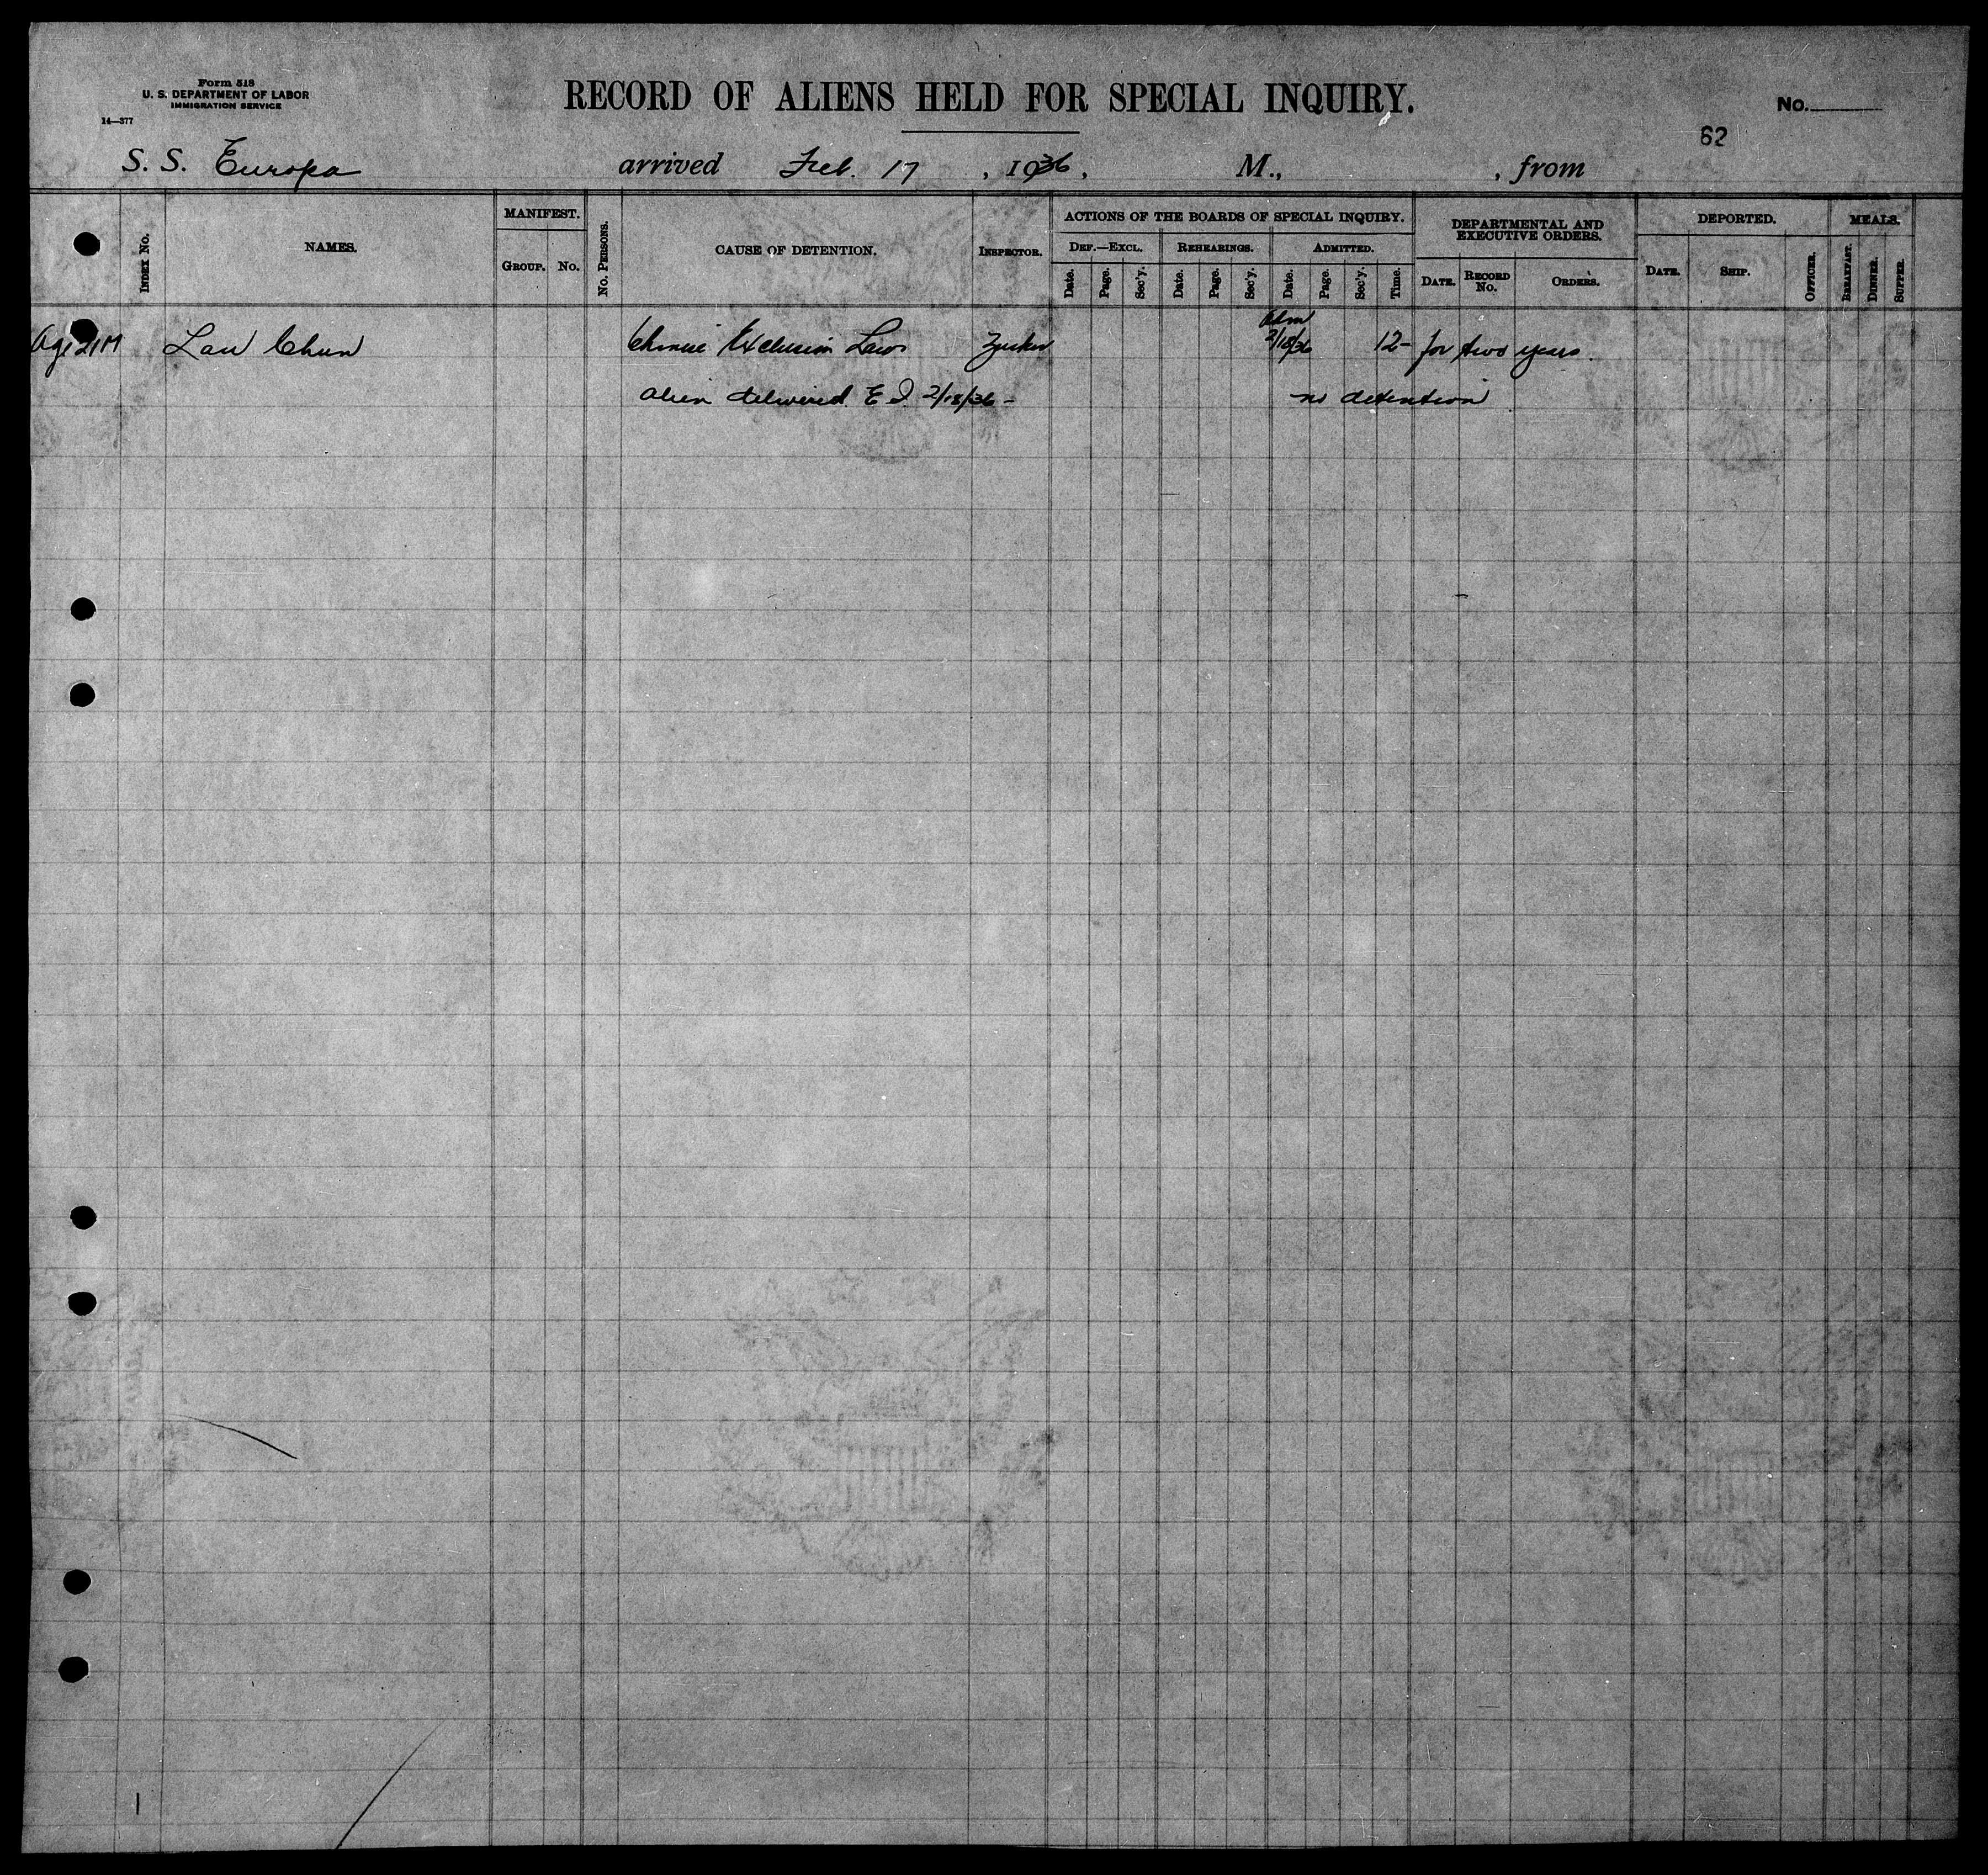 Form 518
U. S. DEPARTMENT OF LABOR
IMMIGRATION SERVICE
14—377
RECORD OF ALIENS HELD FOR SPECIAL INQUIRY.
No.
62
S. S. Europa arrived Feb. 17, 1936, M., , from
INDEX No.
NAMES.
MANIFEST.
GROUP. No.
No. PERSONS.
CAUSE OF DETENTION.
INSPECTOR.
ACTIONS OF THE BOARDS OF SPECIAL INQUIRY.
DEF.—EXCL. REHEARINGS. ADMITTED.
Date. Page. Sec'y. Date. Page. Sec'y. Date. Page. Sec'y. Time.
DEPARTMENTAL AND
EXECUTIVE ORDERS.
DATE. RECORD No. ORDERS.
DEPORTED.
DATE. SHIP. OFFICER.
MEALS.
BREAKFAST. DINNER. SUPPER.
Adm
Age 21 M Lau Chun Chinese Exclusion Law 2/18/36 12- for two years.
Alien delivered E I 2/18/36 - no detention